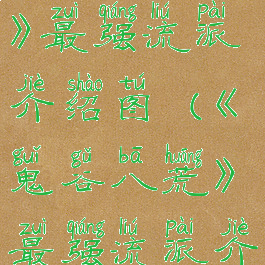 zuì qiáng liú Pài
》最强流派
jiè shào tú
介绍图（《
guǐ gǔ bā huāng
鬼谷八荒》
zuì qiáng liú Pài jiè
最强流派介